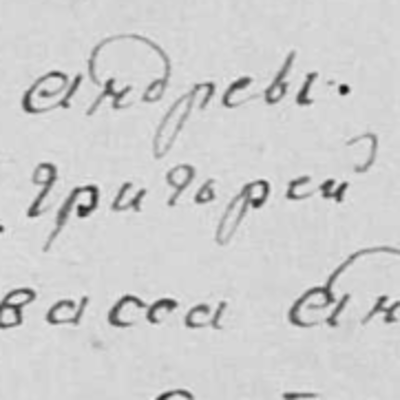 андревы.
григорей
васса ан